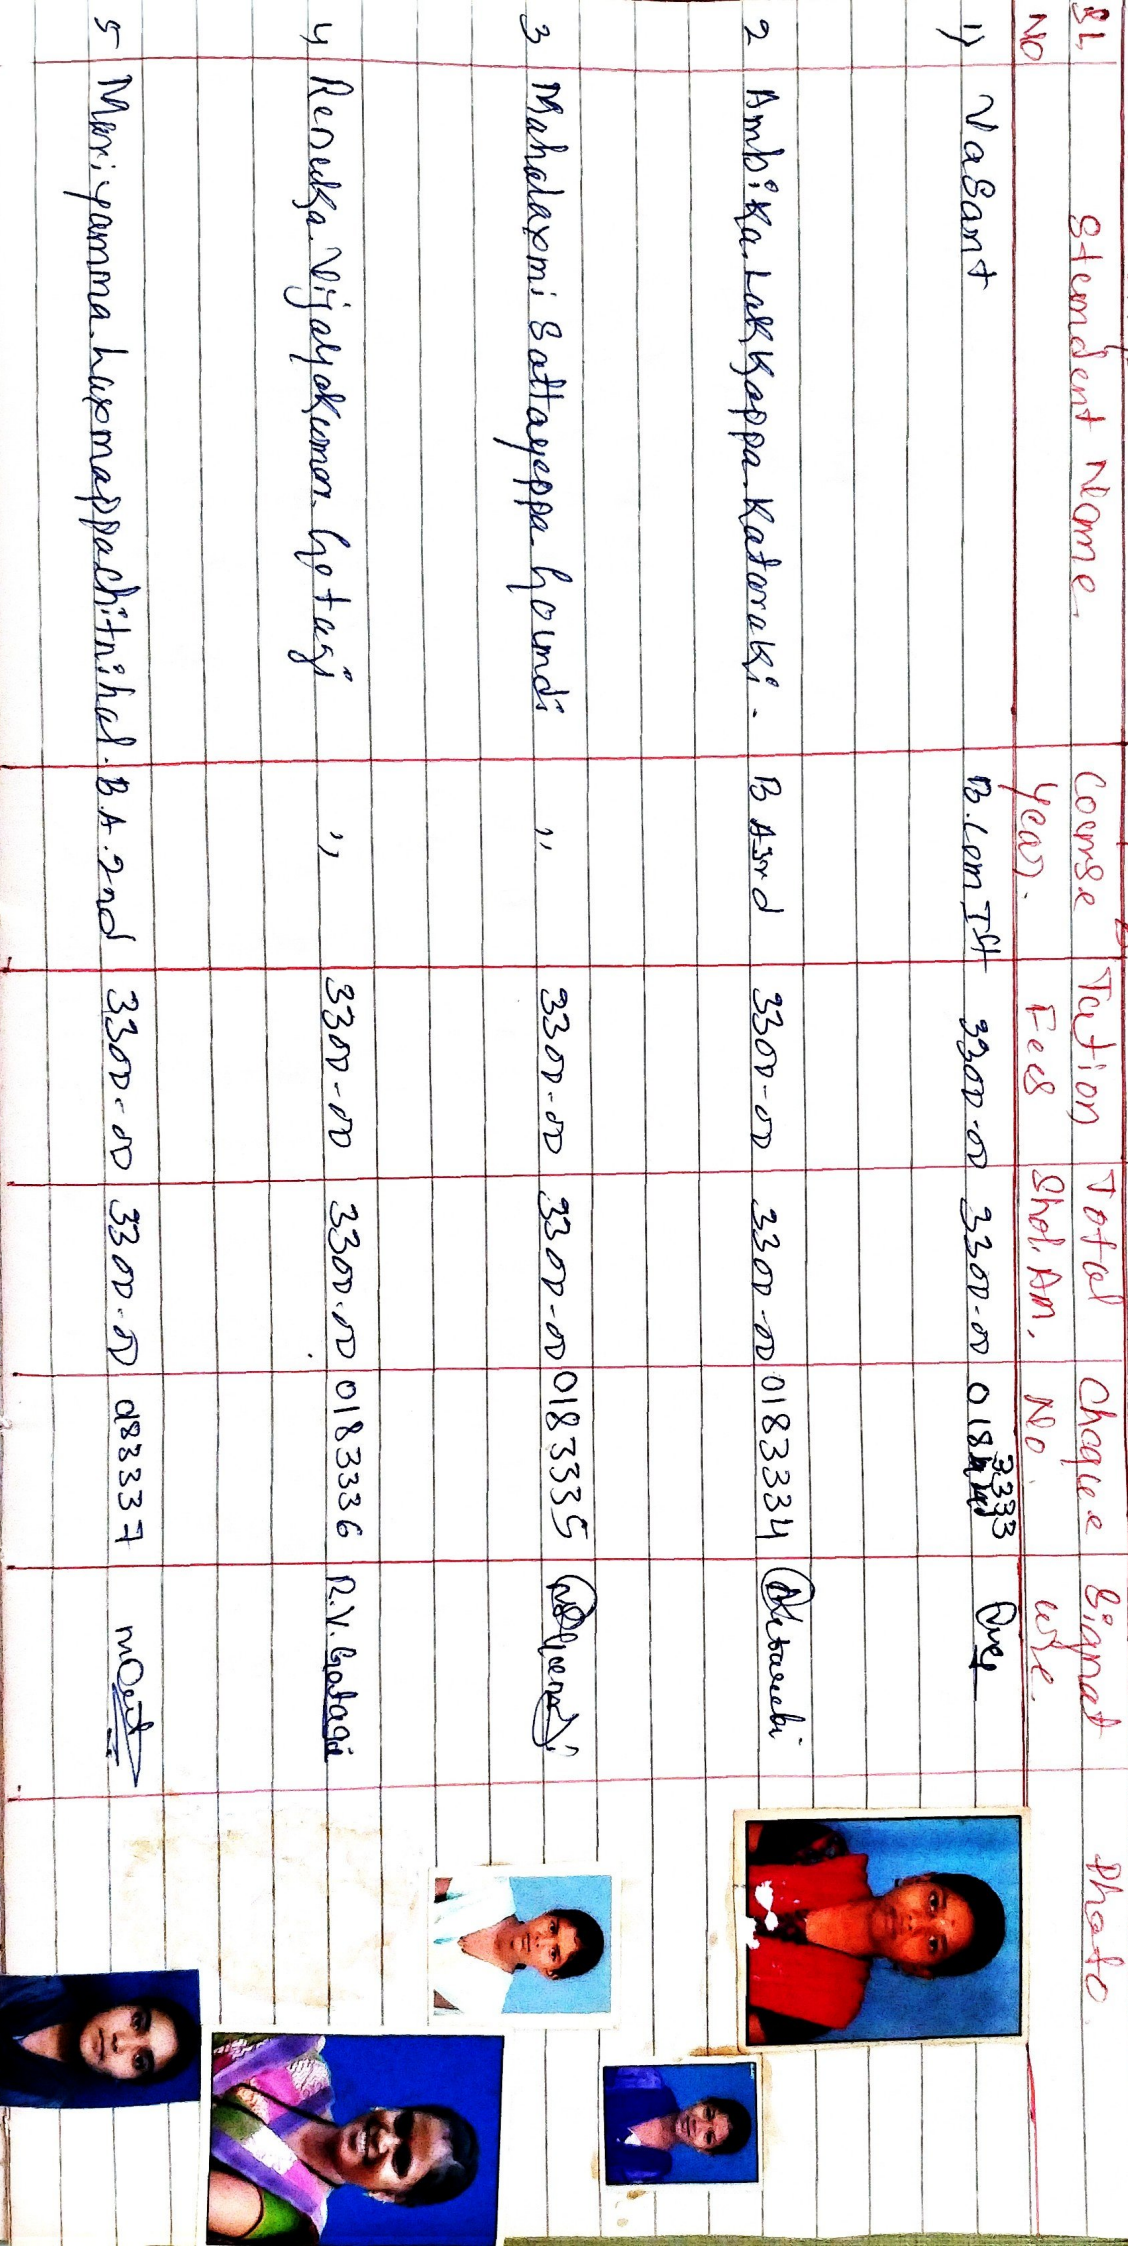 SL NO Stemdent Name Course year. Tution Fees Total Shol. Am. Cheque No Signat ure. Photo
1) Vasant B.Com Ist 3300-00 3300-00 0183333
2 Ambika. Lakkappa. Kataraki. B A 3rd 3300-00 3300-00 0183334
3 Mahalaxmi Sattayeppa. Goundi ,, 3300-00 3300-00 0183335
4) Renuka. Vijayakumar. Gotagi ,, 3300-00 3300.00 0183336 R.V. Gotagi
5 Mariyamma. Laxmappa chitnihal. B.A. 2nd 3300-00 3300-00 0183337